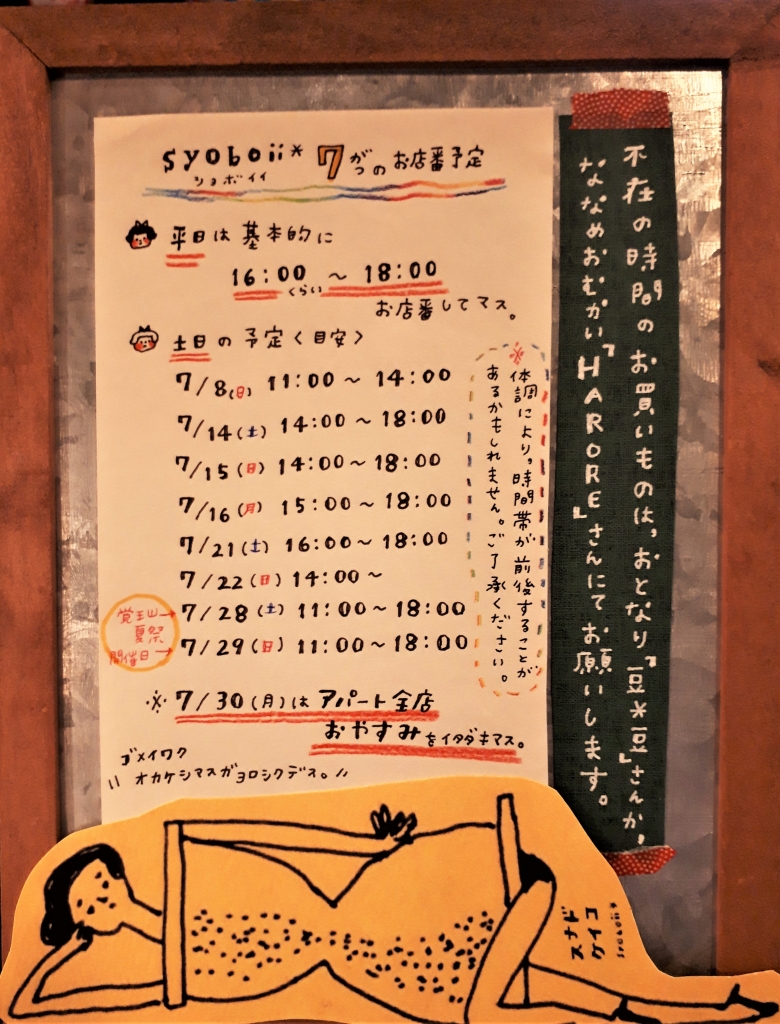 syoboii* 7がつのお店番予定
ショボイイ
平日は基本的に
16:00くらい～18:00
お店番してマス。
土日の予定〈目安〉
7/8(日) 11:00～14:00
7/14(土) 14:00～18:00
7/15(日) 14:00～18:00
7/16(月) 15:00～18:00
7/21(土) 16:00～18:00
7/22(日) 14:00～
7/28(土) 11:00～18:00
7/29(日) 11:00～18:00
覚王山→
夏祭
開催日→
※体調により、時間帯が前後することが
あるかもしれません。ご了承ください。
※7/30(月)はアパート全店
おやすみをイタダキマス。
ゴメイワク
\\ オカケシマスガヨロシクデス。//
不在の時間のお買いものは、おとなり『豆米豆』さんか、
ななめおむかい『HARORE』さんにてお願いします。
スナド
ケイコ